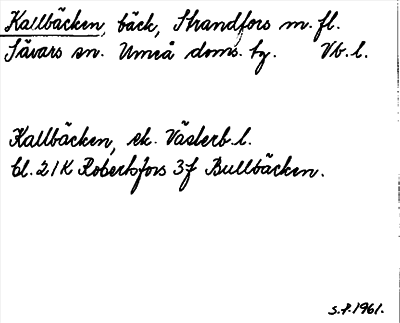 Kallbäcken, bäck, Strandfors m. fl.
Sävars sn. Umeå doms. tg. Vb. l.
Kallbäcken, ek. Västerb. l.
bl. 21K Robertsfors 3f Bullbäcken.
S.P. 1961.